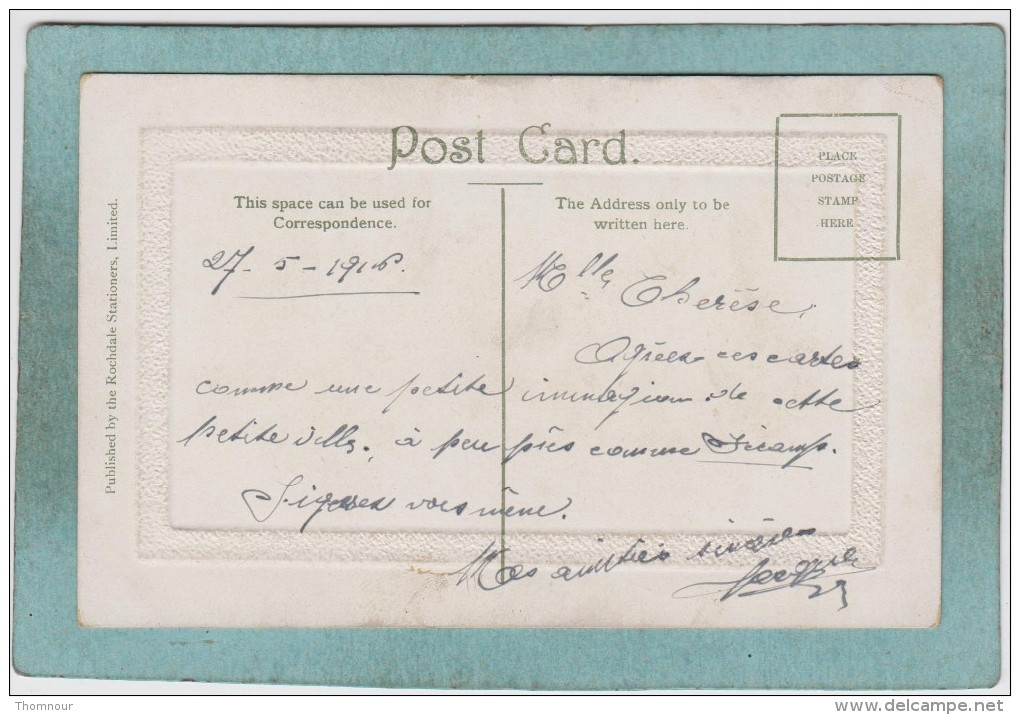 Post Card.
PLACE
POSTAGE
STAMP
HERE
This space can be used for
Correspondence.
The Address only to be
written here.
Published by the Rochdale Stationers, Limited.
27-5-1916.
Melle Therèse,
Agréez ces cartes
comme une petite de cette
petite ville. à peu près comme Fécamp.
vous même.
Mes amitiés sincères
Thomnour
delcampe.net